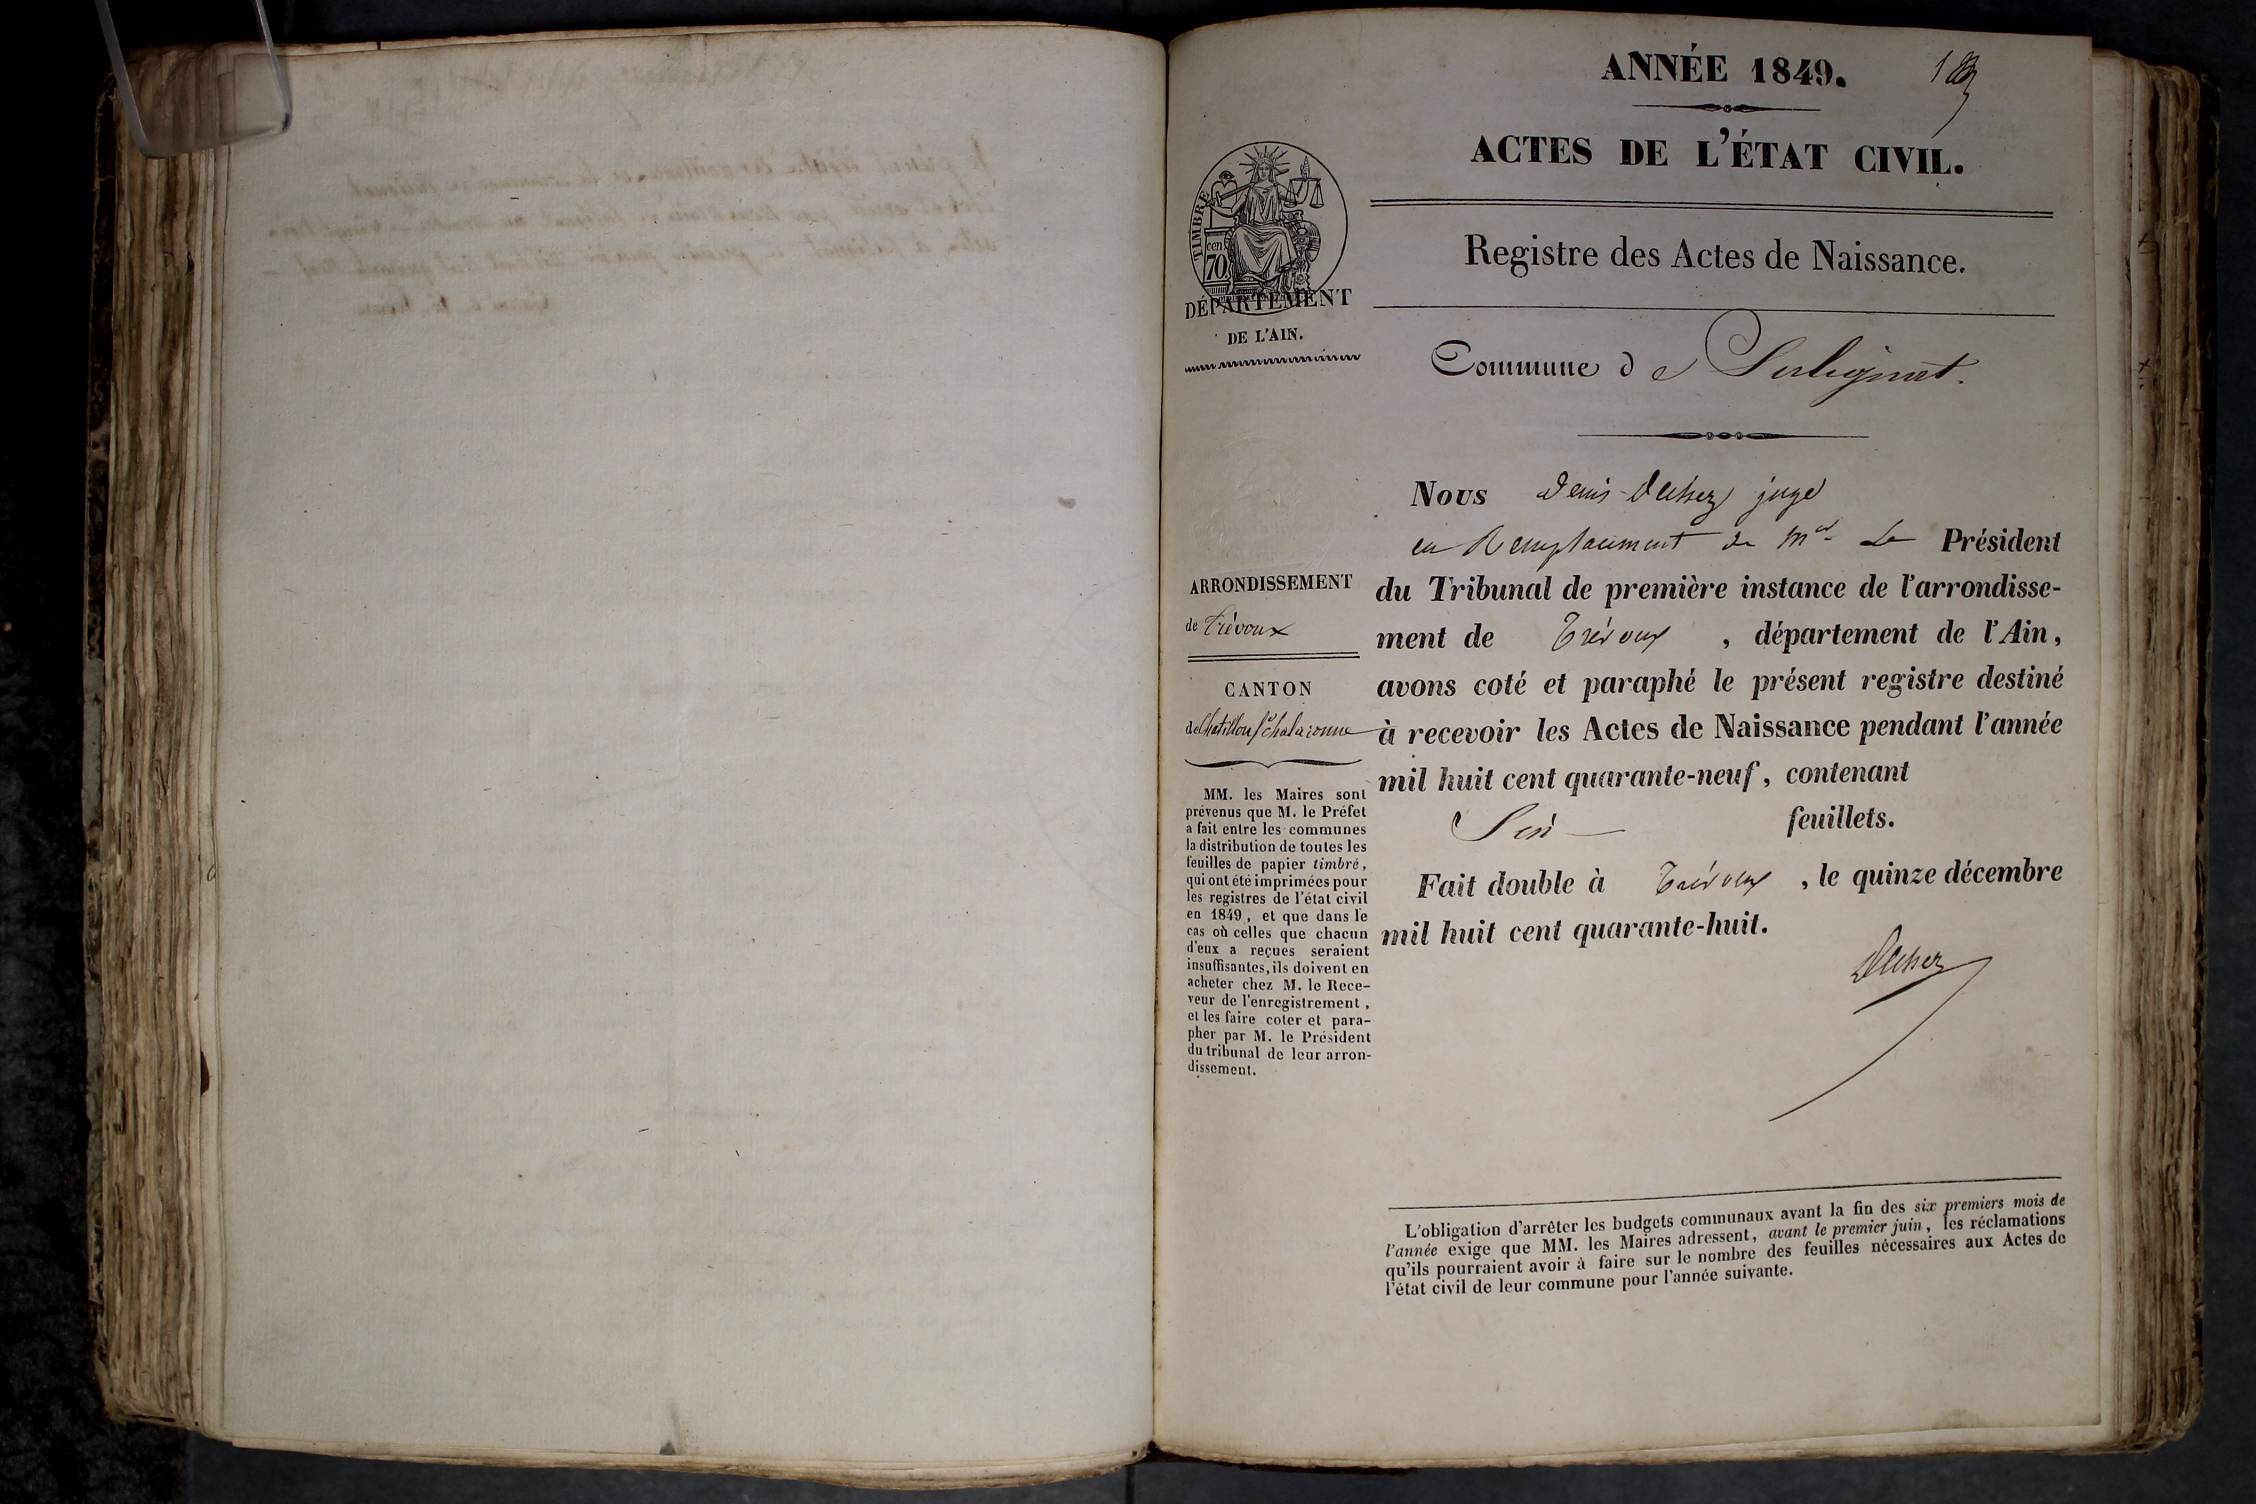 ANNÉE 1849.
ACTES DE L'ÉTAT CIVIL.
Registre des Actes de Naissance.
TIMBRE
cen.
70
DÉPARTEMENT
DE L'AIN.
Commune de Sulignat.
Nous Denis Dechez juge
en Remplacement de Mr Le Président
du Tribunal de première instance de l'arrondisse-
ment de Trévoux, département de l'Ain,
avons coté et paraphé le présent registre destiné
à recevoir les Actes de Naissance pendant l'année
mil huit cent quarante-neuf, contenant
feuillets.
Fait double à Trévoux, le quinze décembre
mil huit cent quarante-huit.
Dechez
ARRONDISSEMENT
de Trévoux
CANTON
de Chatillon sr Chalaronne
MM. les Maires sont
prévenus que M. le Préfet
a fait entre les communes
la distribution de toutes les
feuilles de papier timbré,
qui ont été imprimées pour
les registres de l'état civil
en 1849, et que dans le
cas où celles que chacun
d'eux a reçues seraient
insuffisantes, ils doivent en
acheter chez M. le Rece-
veur de l'enregistrement,
et les faire coter et para-
pher par M. le Président
du tribunal de leur arron-
dissement.
L'obligation d'arrêter les budgets communaux avant la fin des six premiers mois de
l'année exige que MM. les Maires adressent, avant le premier juin, les réclamations
qu'ils pourraient avoir à faire sur le nombre des feuilles nécessaires aux Actes de
l'état civil de leur commune pour l'année suivante.